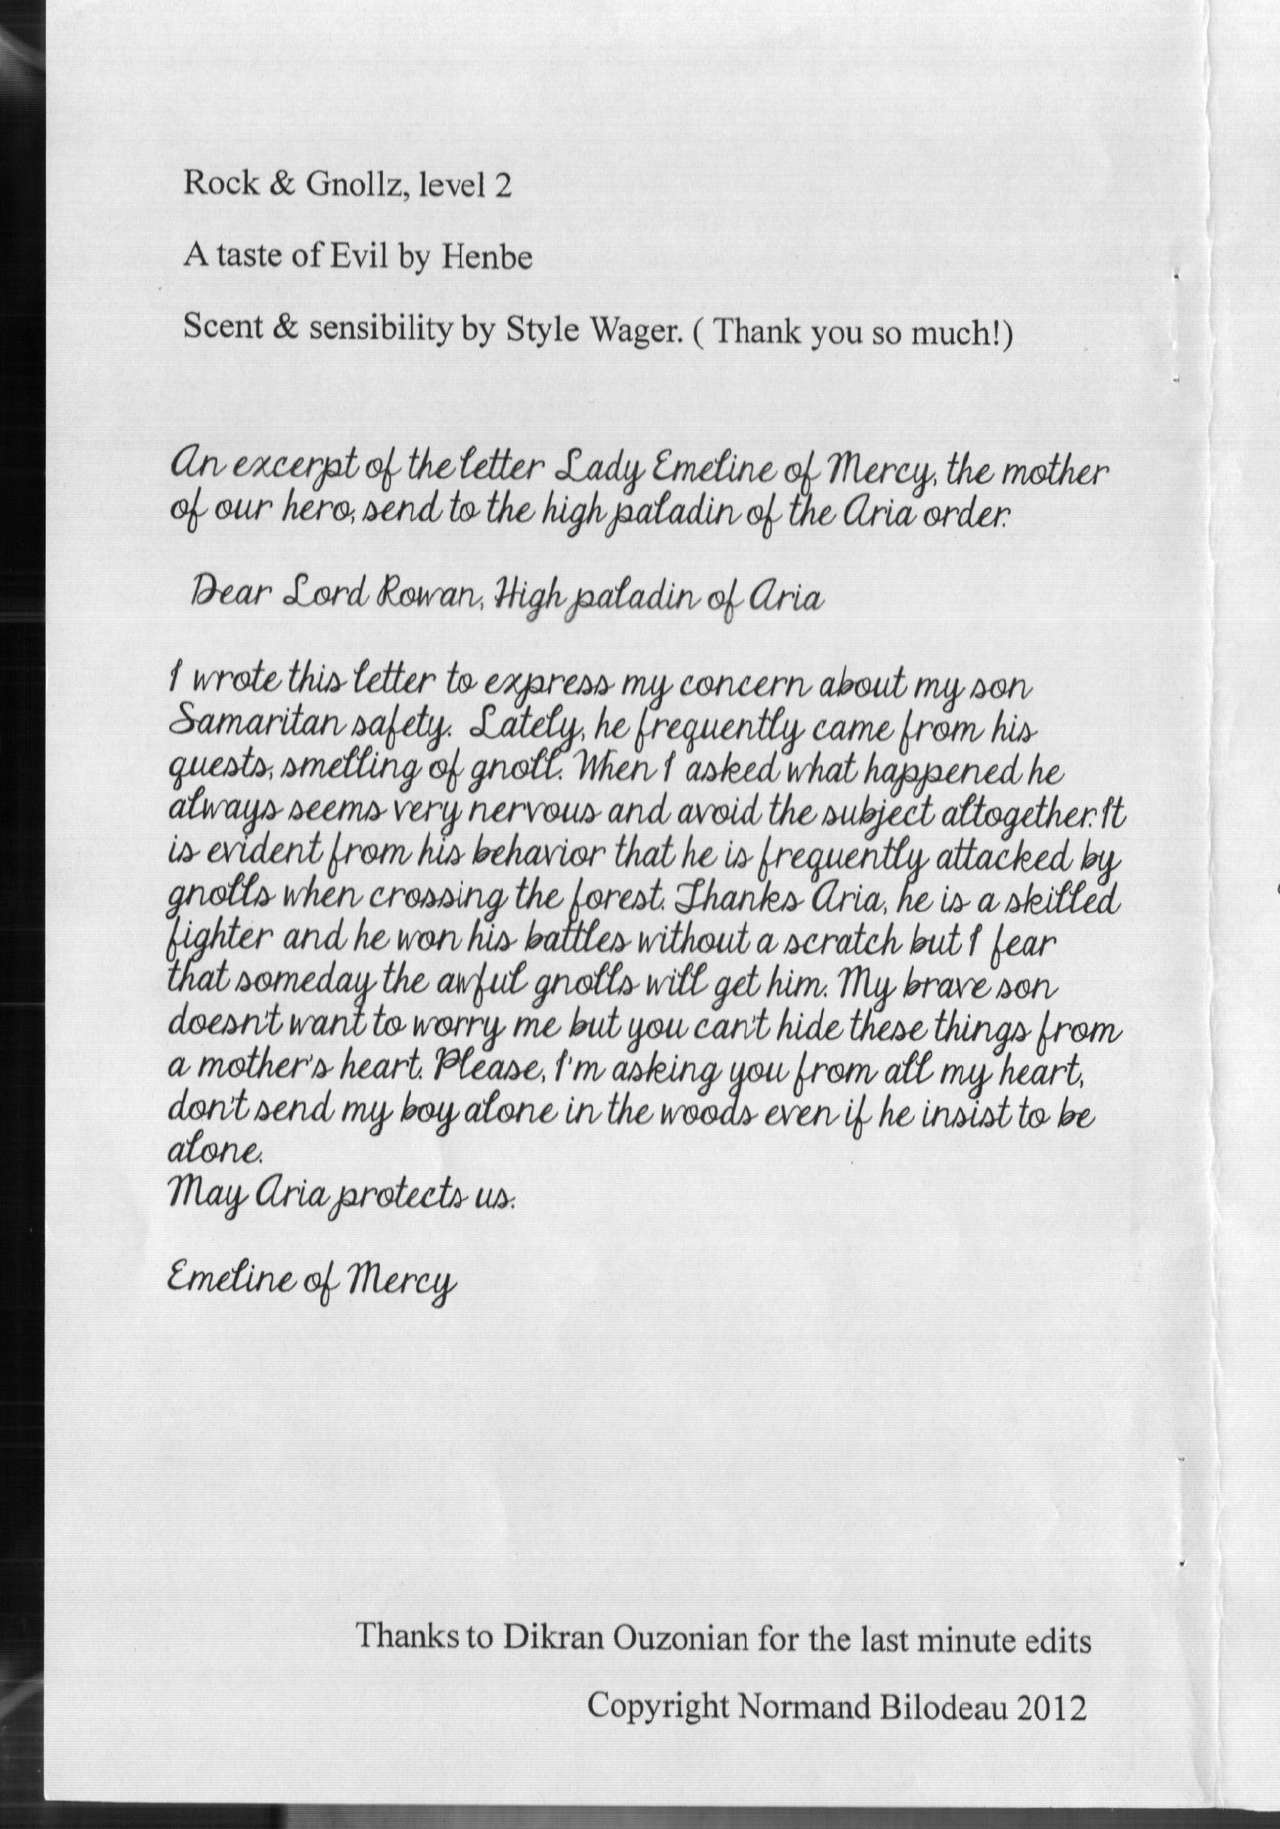 Rock & Gnollz, level 2
A taste of Evil by Henbe
Scent & sensibility by Style Wager. ( Thank you so much!)
An excerpt of the letter Lady Emeline of Mercy, the mother
of our hero, send to the high paladin of the Aria order.
Dear Lord Rowan, High paladin of Aria
I wrote this letter to express my concern about my son
Samaritan safety. Lately, he frequently came from his
quests, smelling of gnoll. When I asked what happened he
always seems very nervous and avoid the subject altogether. It
is evident from his behavior that he is frequently attacked by
gnolls when crossing the forest. Thanks Aria, he is a skilled
fighter and he won his battles without a scratch but I fear
that someday the awful gnolls will get him. My brave son
doesn't want to worry me but you can't hide these things from
a mother's heart. Please, I'm asking you from all my heart,
don't send my boy alone in the woods even if he insist to be
alone.
May Aria protects us.
Emeline of Mercy
Thanks to Dikran Ouzonian for the last minute edits
Copyright Normand Bilodeau 2012